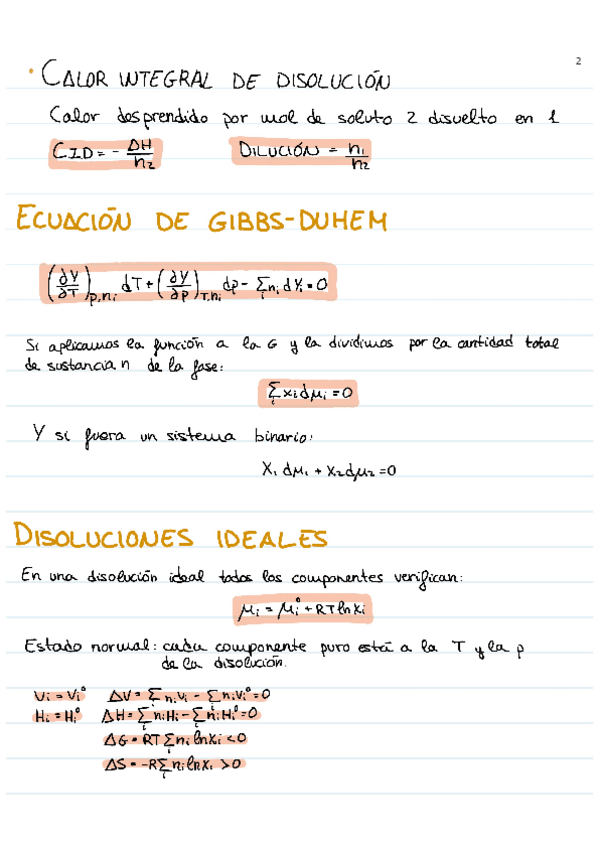 2
· CALOR INTEGRAL DE DISOLUCIÓN
Calor desprendido por mol de soluto 2 disuelto en 1
CID = - ΔH/n₂ DILUCIÓN = n₁/n₂
ECUACIÓN DE GIBBS-DUHEM
(∂Y/∂T)p,nᵢ dT + (∂Y/∂p)T,nᵢ dp - Σᵢ nᵢ dYᵢ = 0
Si aplicamos la función a la G y la dividimos por la cantidad total
de sustancia n de la fase:
Σᵢ xᵢ dμᵢ = 0
Y si fuera un sistema binario:
X₁ dμ₁ + X₂ dμ₂ = 0
DISOLUCIONES IDEALES
En una disolución ideal todos los componentes verifican:
μᵢ = μᵢ⁰ + RT ln xᵢ
Estado normal: cada componente puro está a la T y la p
de la disolución.
Vᵢ = Vᵢ⁰ ΔV = Σᵢ nᵢVᵢ - Σᵢ nᵢVᵢ⁰ = 0
Hᵢ = Hᵢ⁰ ΔH = Σᵢ nᵢHᵢ - Σᵢ nᵢHᵢ⁰ = 0
ΔG = RT Σᵢ nᵢ ln xᵢ < 0
ΔS = -R Σᵢ nᵢ ln xᵢ > 0